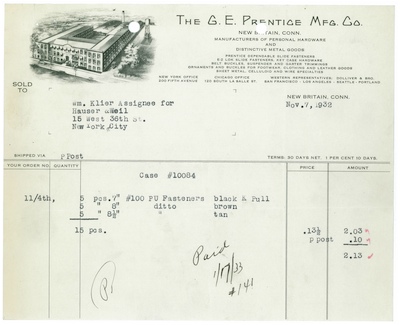 THE G. E. PRENTICE MFG. CO.
NEW BRITAIN, CONN.
MANUFACTURERS OF PERSONAL HARDWARE
AND
DISTINCTIVE METAL GOODS
PRENTICE DEPENDABLE SLIDE FASTENERS
E-Z LOK SLIDE FASTENERS, ZET CASE HARDWARE
BELT BUCKLES, SUSPENDER AND GARTER TRIMMINGS
ORNAMENTS AND BUCKLES FOR FOOTWEAR, CLOTHING AND LEATHER GOODS
SHEET METAL, CELLULOID AND WIRE SPECIALTIES
NEW YORK OFFICE
200 FIFTH AVENUE
CHICAGO OFFICE
120 SOUTH LA SALLE ST.
WESTERN REPRESENTATIVES, DOLLIVER & BRO.
SAN FRANCISCO - LOS ANGELES - SEATTLE - PORTLAND
SOLD
TO
NEW BRITAIN, CONN.
Nov. 7, 1932
Wm. Klier Assignee for
Hauser & Weil
15 West 36th St.
New York City
SHIPPED VIA P Post
TERMS: 30 DAYS NET. 1 PER CENT 10 DAYS.
YOUR ORDER NO. QUANTITY PRICE AMOUNT
Case #10084
11/4th, 5 pcs. 7" #100 PU Fasteners black & Pull
5 " 8" ditto brown
5 " 8½" " tan
15 pcs. .13½ 2.03
p post .10
2.13
Paid
#141